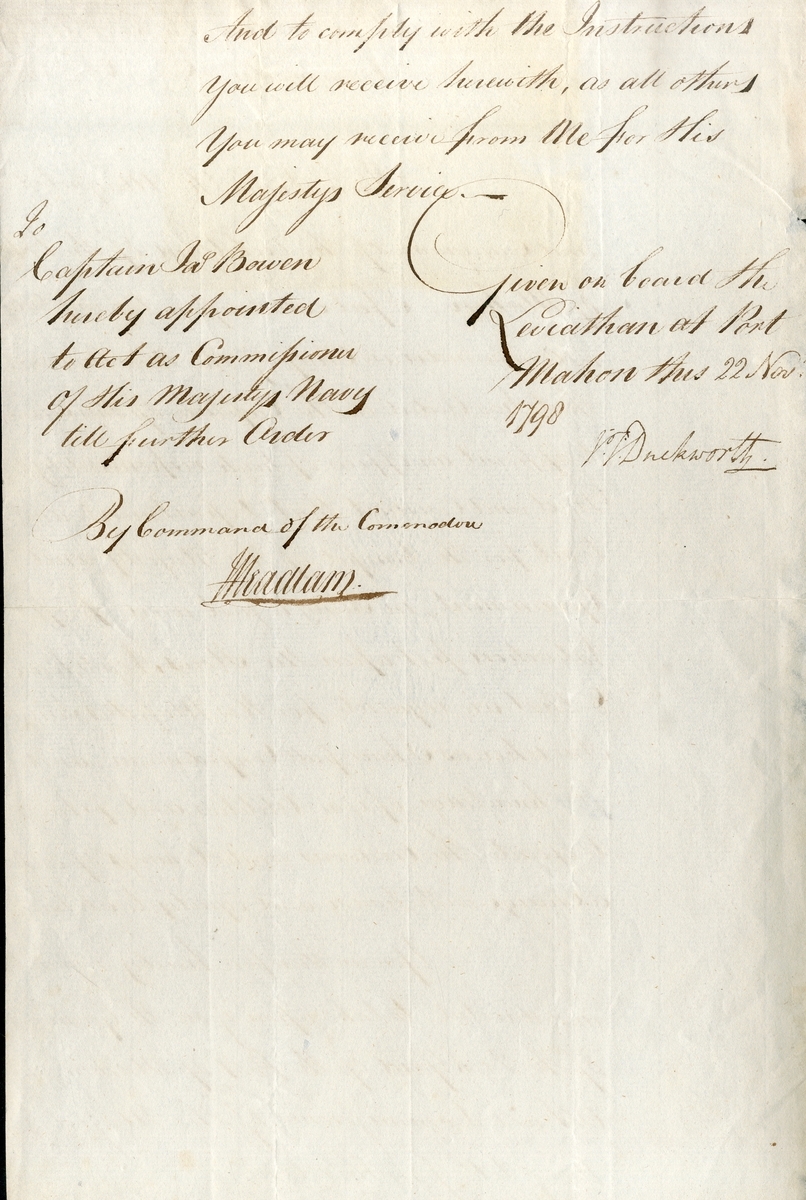 And to comply with the Instructions
You will receive herewith, as all others
You may receive from Me for His
Majestys Service.—
To
Captain Jas Bowen
hereby appointed
to Act as Commissioner
of His Majestys Navy
till further Order
Given on board the
Leviathan at Port
Mahon this 22 Novr.
1798
J.T. Duckworth.
By Command of the Commodore